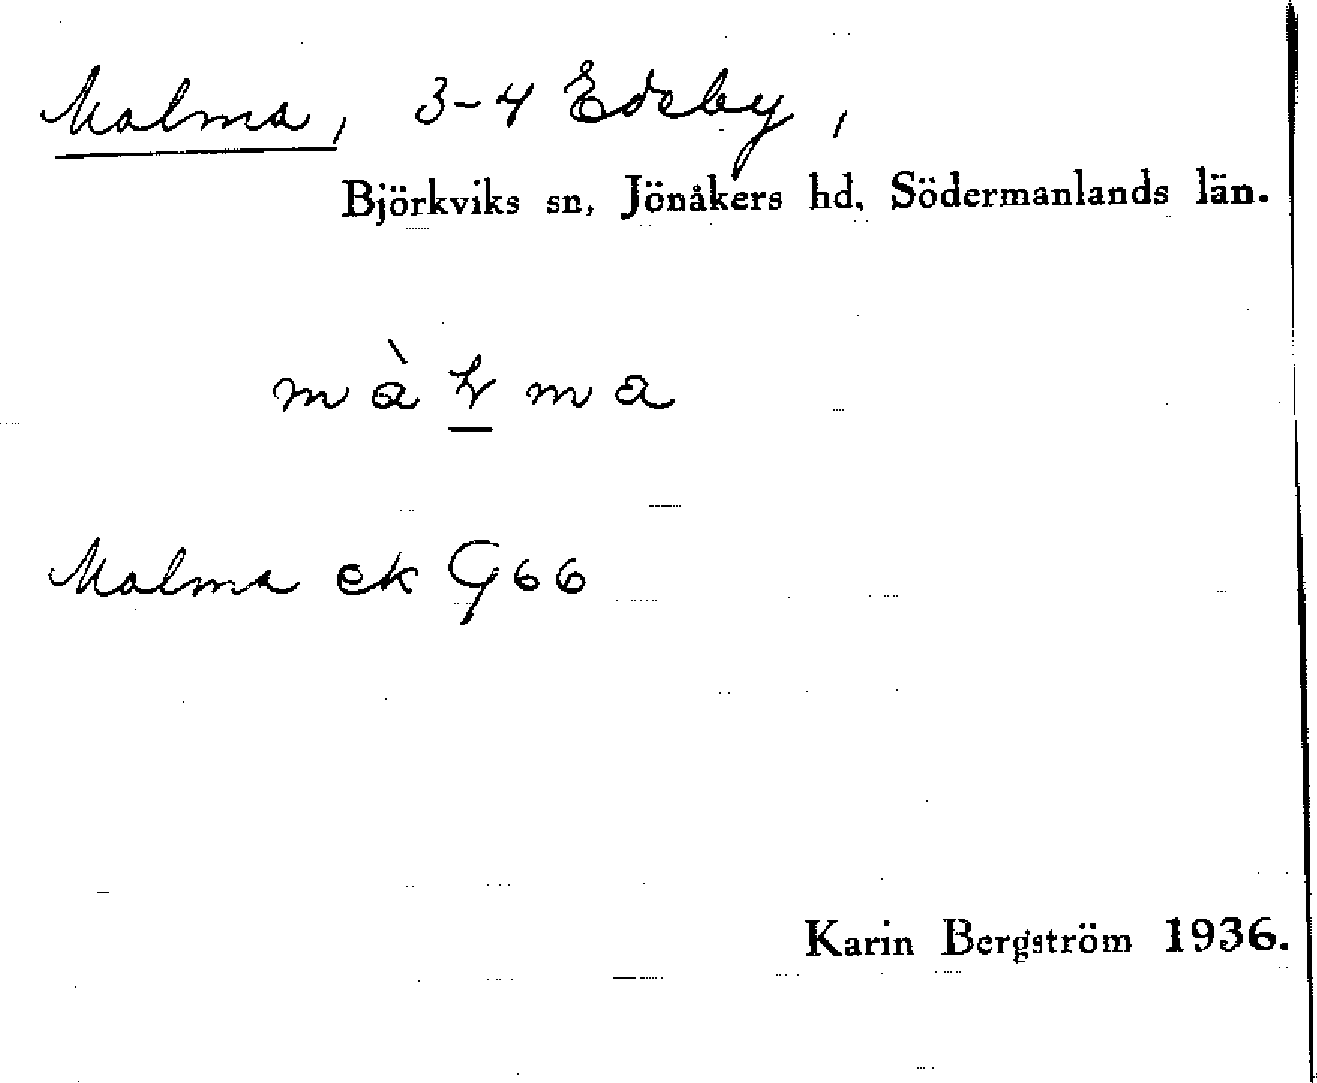 Malma, 3-4 Edeby,
Björkviks sn, Jönåkers hd, Södermanlands län.
Malma ek G66
Karin Bergström 1936.